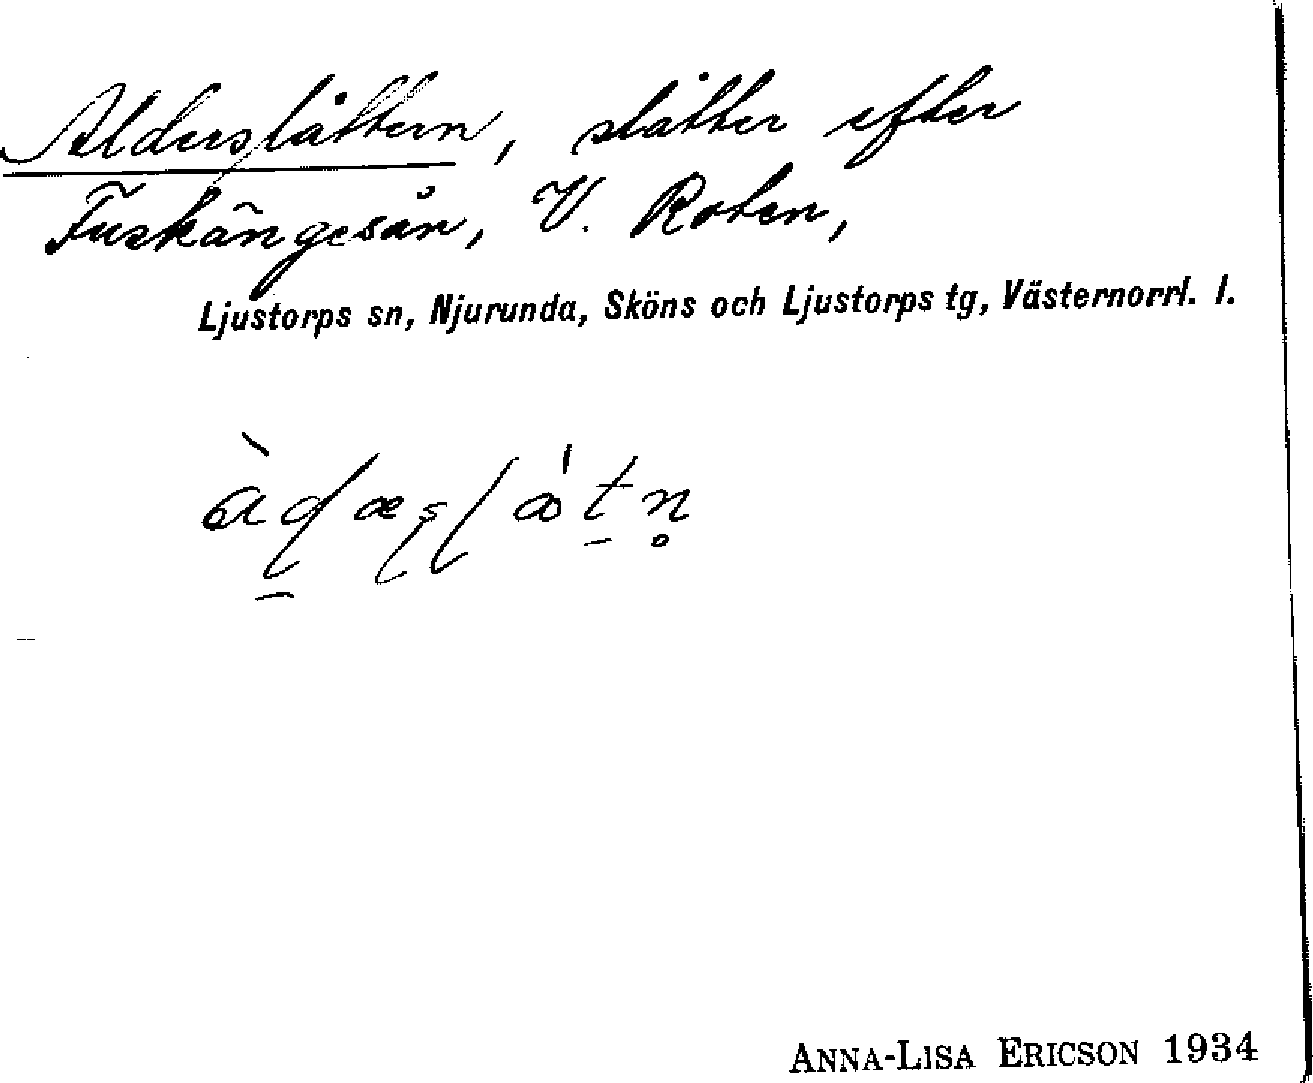 Alderslåttern, slåtter efter
Fuskängesån, V. Roten,
Ljustorps sn, Njurunda, Sköns och Ljustorps tg, Västernorrl. l.
ANNA-LISA ERICSON 1934